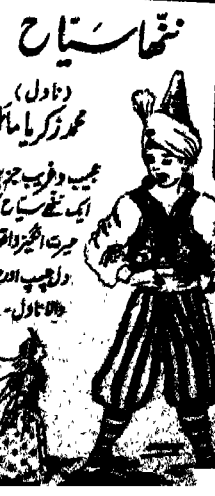 ننھا سیاح
(ناول)
محمد زکریا مائل
عجیب و غریب جزیر
ایک ننھے سیاح
حیرت انگیز واقع
دل چسپ اور
والا ناول۔